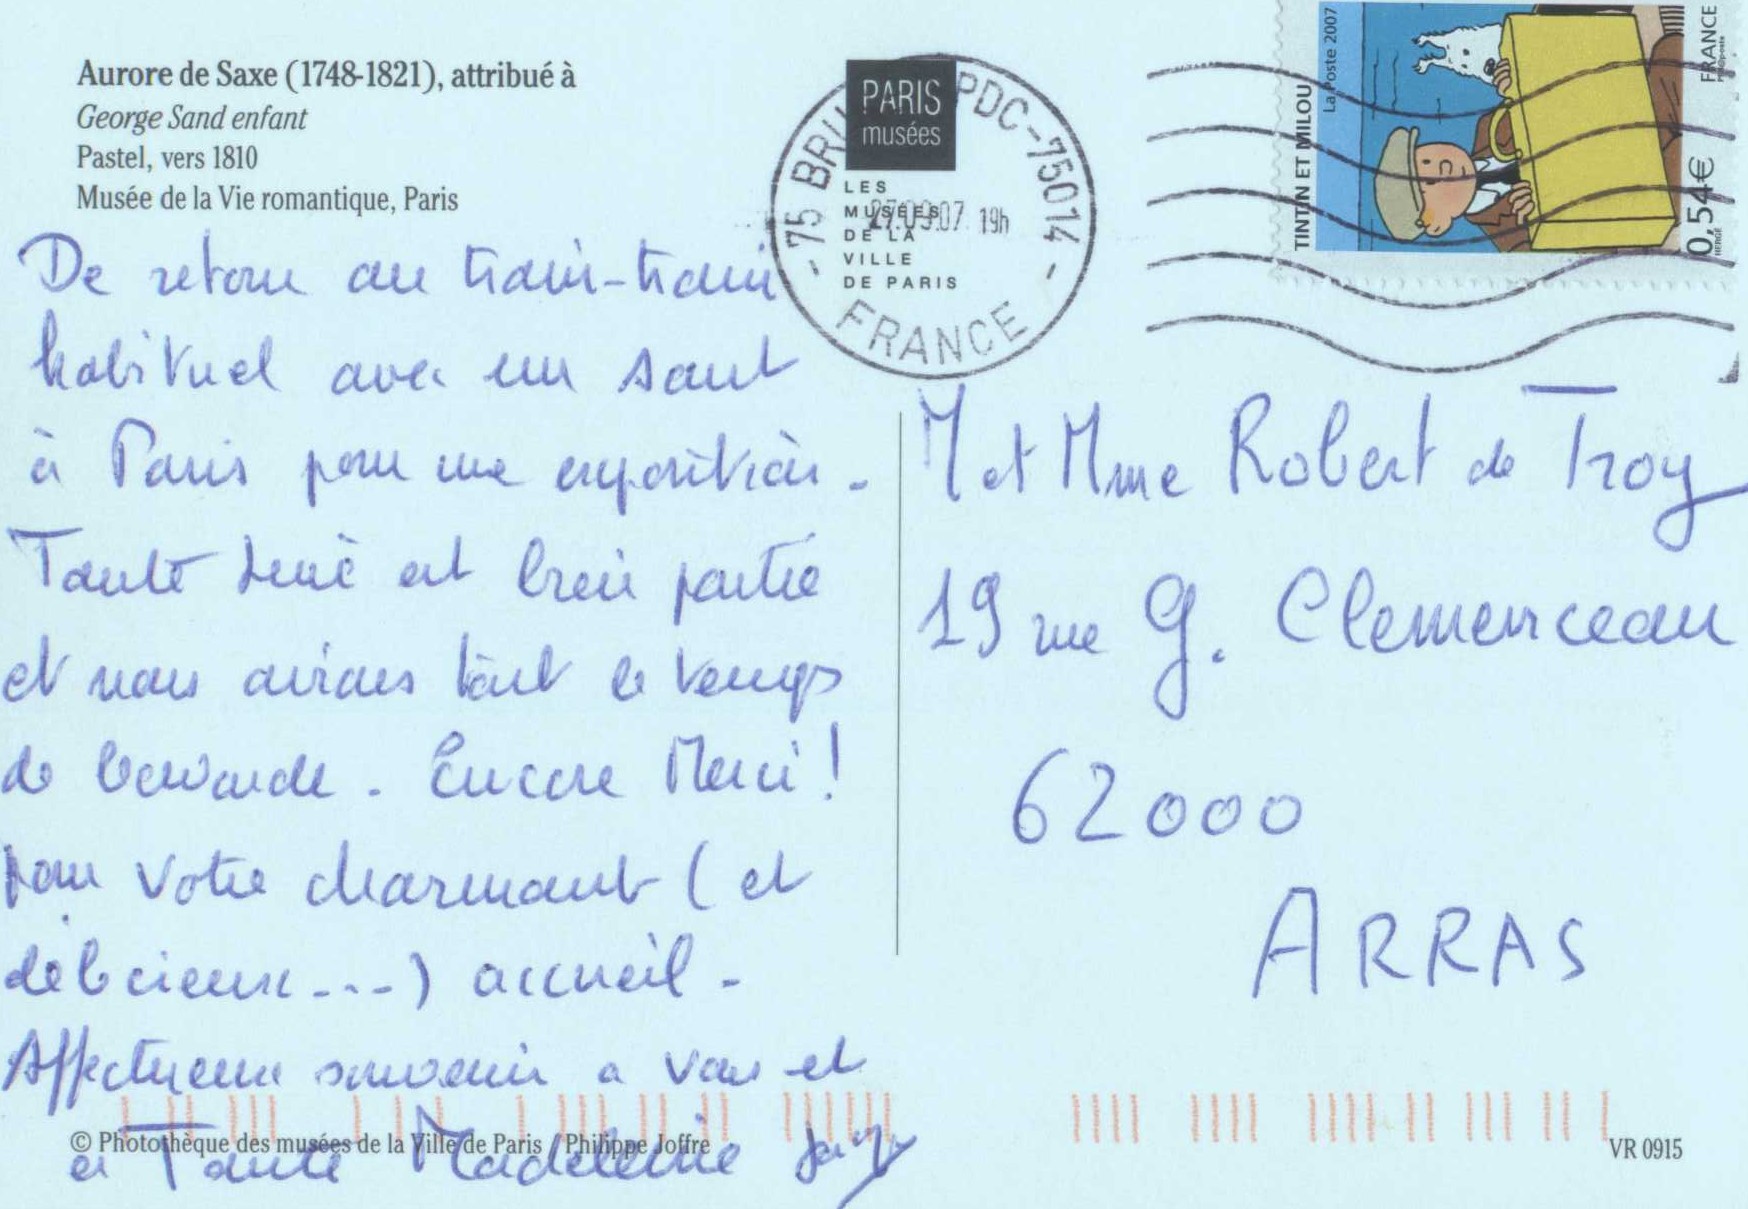 Aurore de Saxe (1748-1821), attribué à
George Sand enfant
Pastel, vers 1810
Musée de la Vie romantique, Paris
De retour au train-train
habituel avec un saut
à Paris pour une exposition.
Tante est bien partie
et nous avions tout le temps
de bavarder. Encore Merci!
pour votre charmant (et
délicieux...) accueil.
Affectueux souvenir à vous et
à Tante Madeleine
© Photothèque des musées de la Ville de Paris / Philippe Joffre
PARIS
musées
LES
MUSÉES
DE LA
VILLE
DE PARIS
75 BRU PDC-75014
27.09.07 19h
FRANCE
TINTIN ET MILOU
La Poste 2007
FRANCE
Phil@poste
0,54€
HERGÉ
M et Mme Robert de Troy
19 rue G. Clemenceau
62000
ARRAS
VR 0915